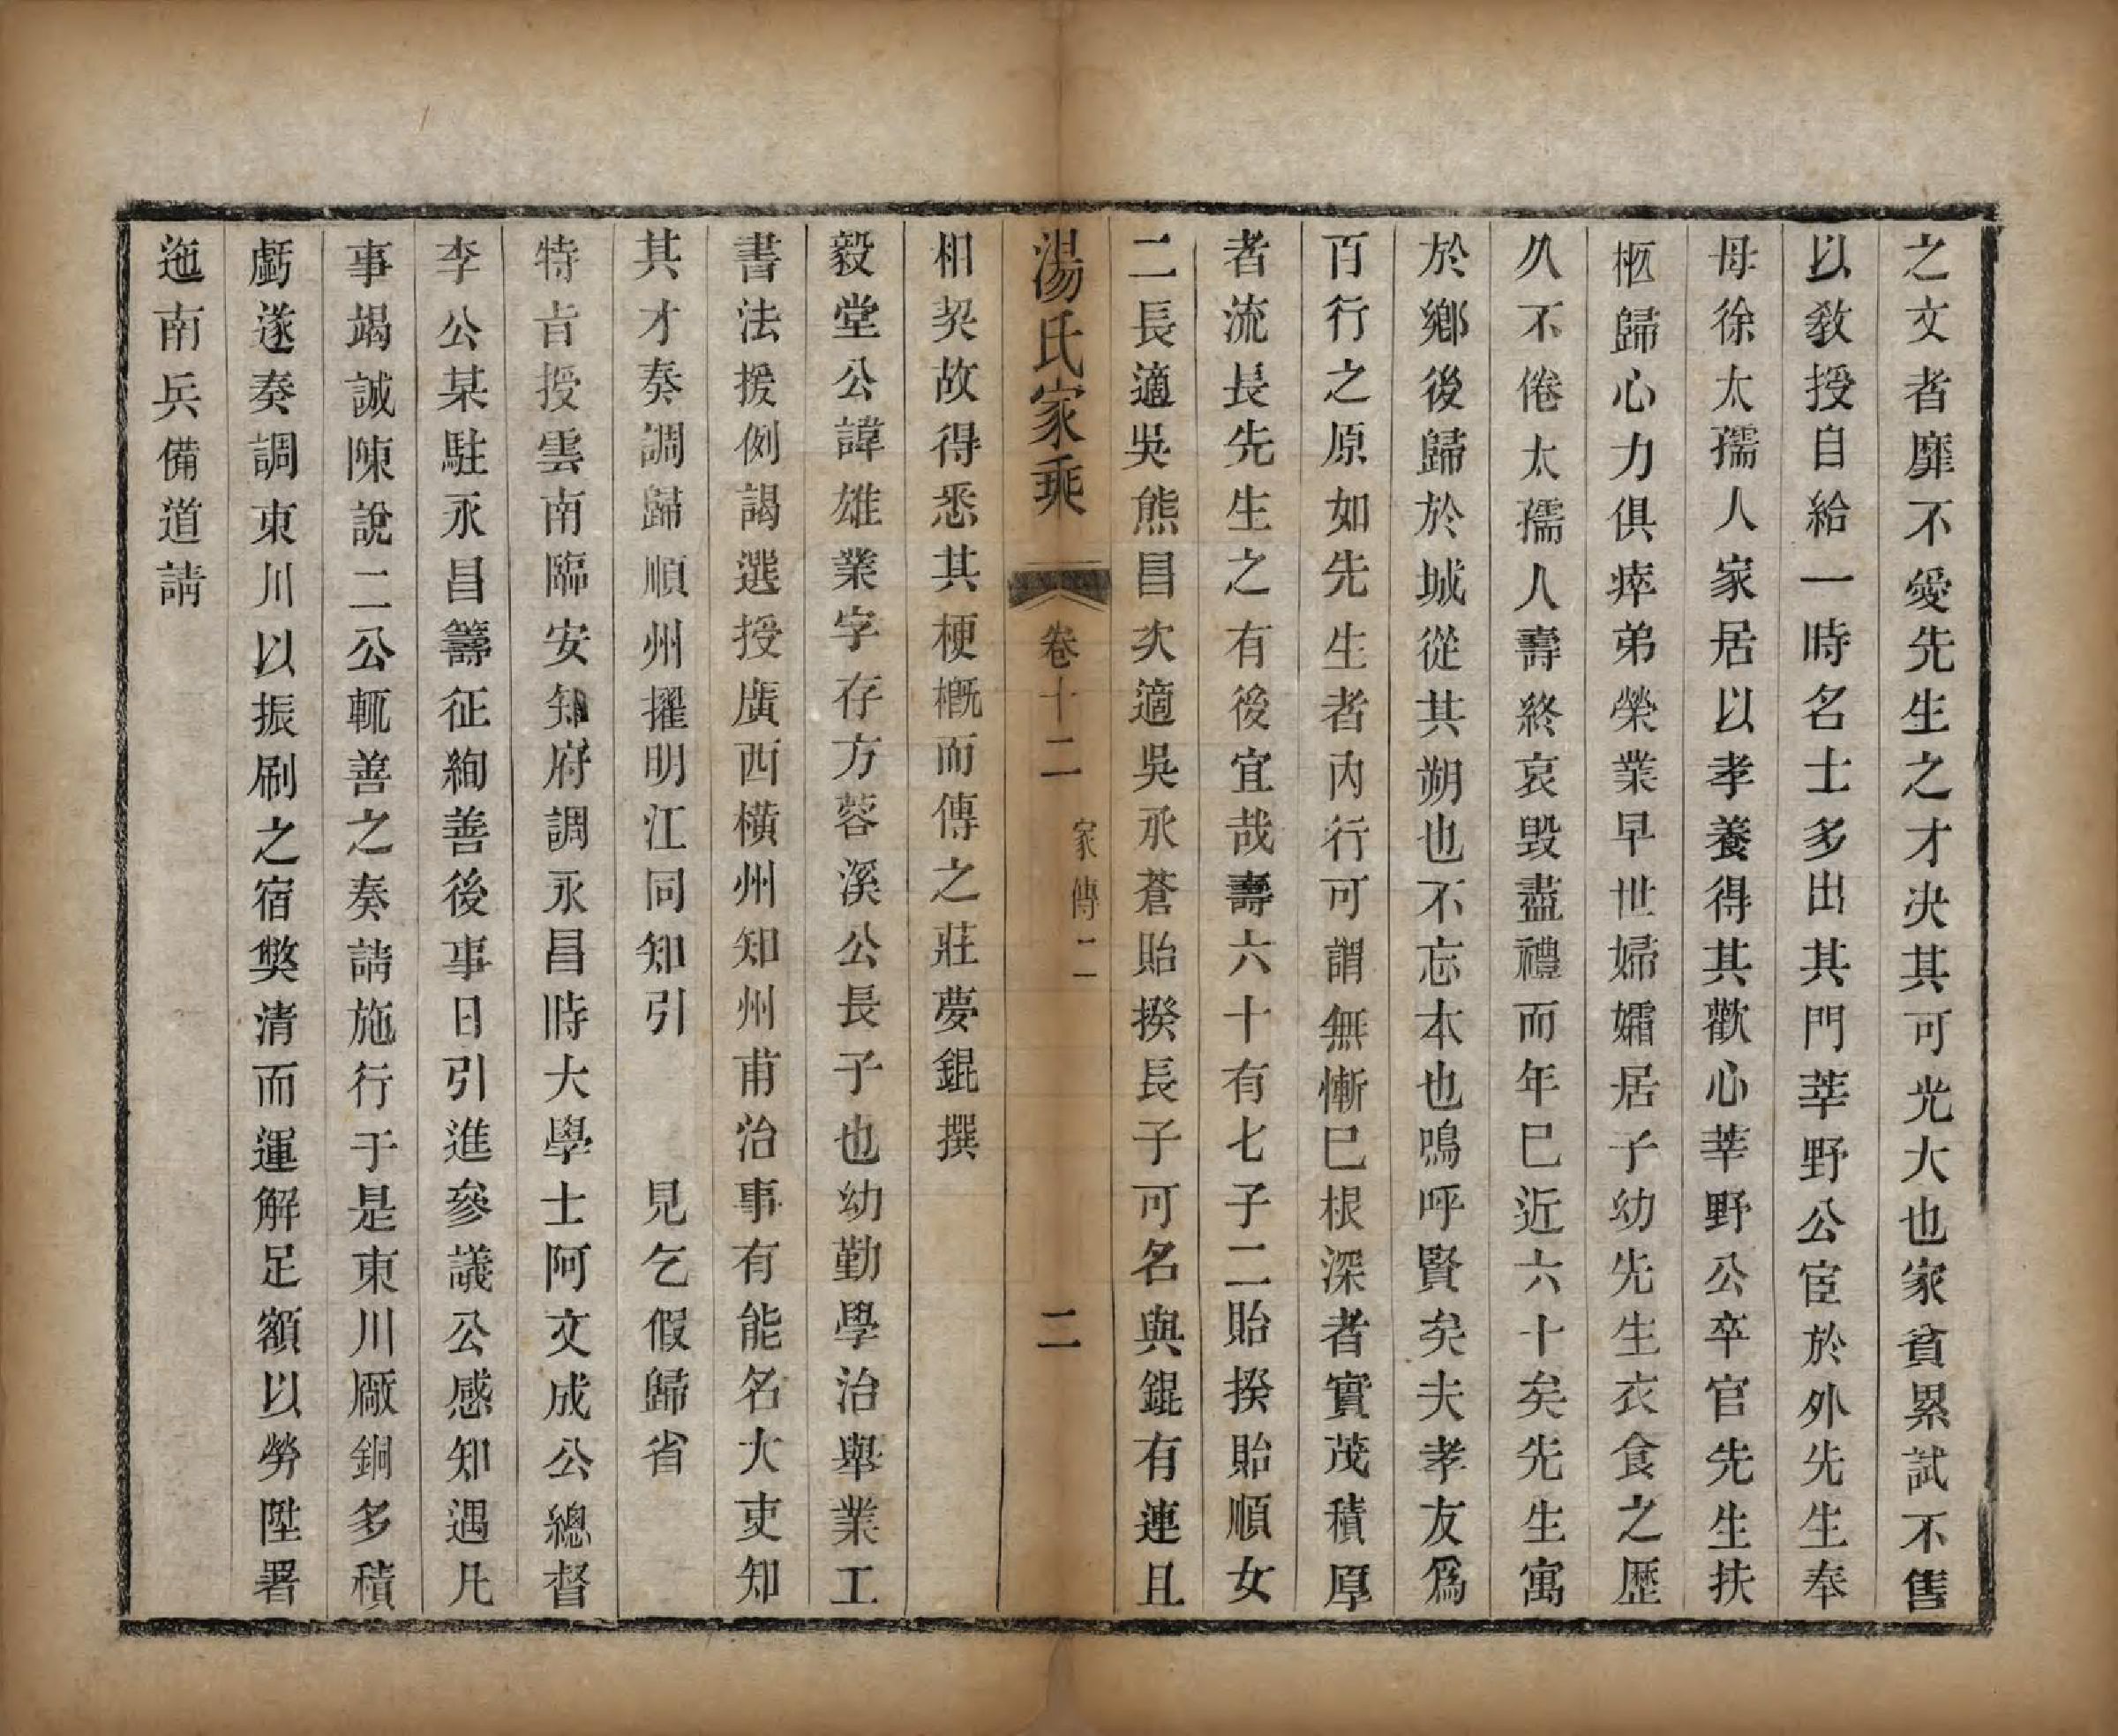 之文者靡不愛先生之才决其可光大也家貧累試不售
以敎授自給一時名士多出其門莘野公宦於外先生奉
母徐太孺人家居以孝養得其歡心莘野公卒官先生扶
柩歸心力俱瘁弟榮業早世婦孀居子幼先生衣食之歷
久不倦太孺人壽終哀毀盡禮而年巳近六十矣先生寓
於鄉後歸於城從其朔也不忘本也嗚呼賢矣夫孝友爲
百行之原如先生者內行可謂無慚巳根深者實茂積厚
者流長先生之有後宜哉壽六十有七子二貽揆貽順女
二長適吳熊昌次適吳承蒼貽揆長子可名與錕有連且
湯氏家乘 卷十二 家傳二 二
相契故得悉其梗槪而傳之莊夢錕撰
毅堂公諱雄業字存方蓉溪公長子也幼勤學治舉業工
書法援例謁選授廣西橫州知州甫治事有能名大吏知
其才奏調歸順州擢明江同知引 見乞假歸省
特旨授雲南臨安知府調永昌時大學士阿文成公總督
李公某駐永昌籌征緬善後事日引進參議公感知遇凡
事竭誠陳說二公輒善之奏請施行于是東川厰銅多積
虧遂奏調東川以振刷之宿獘清而運解足額以勞陞署
迤南兵備道請